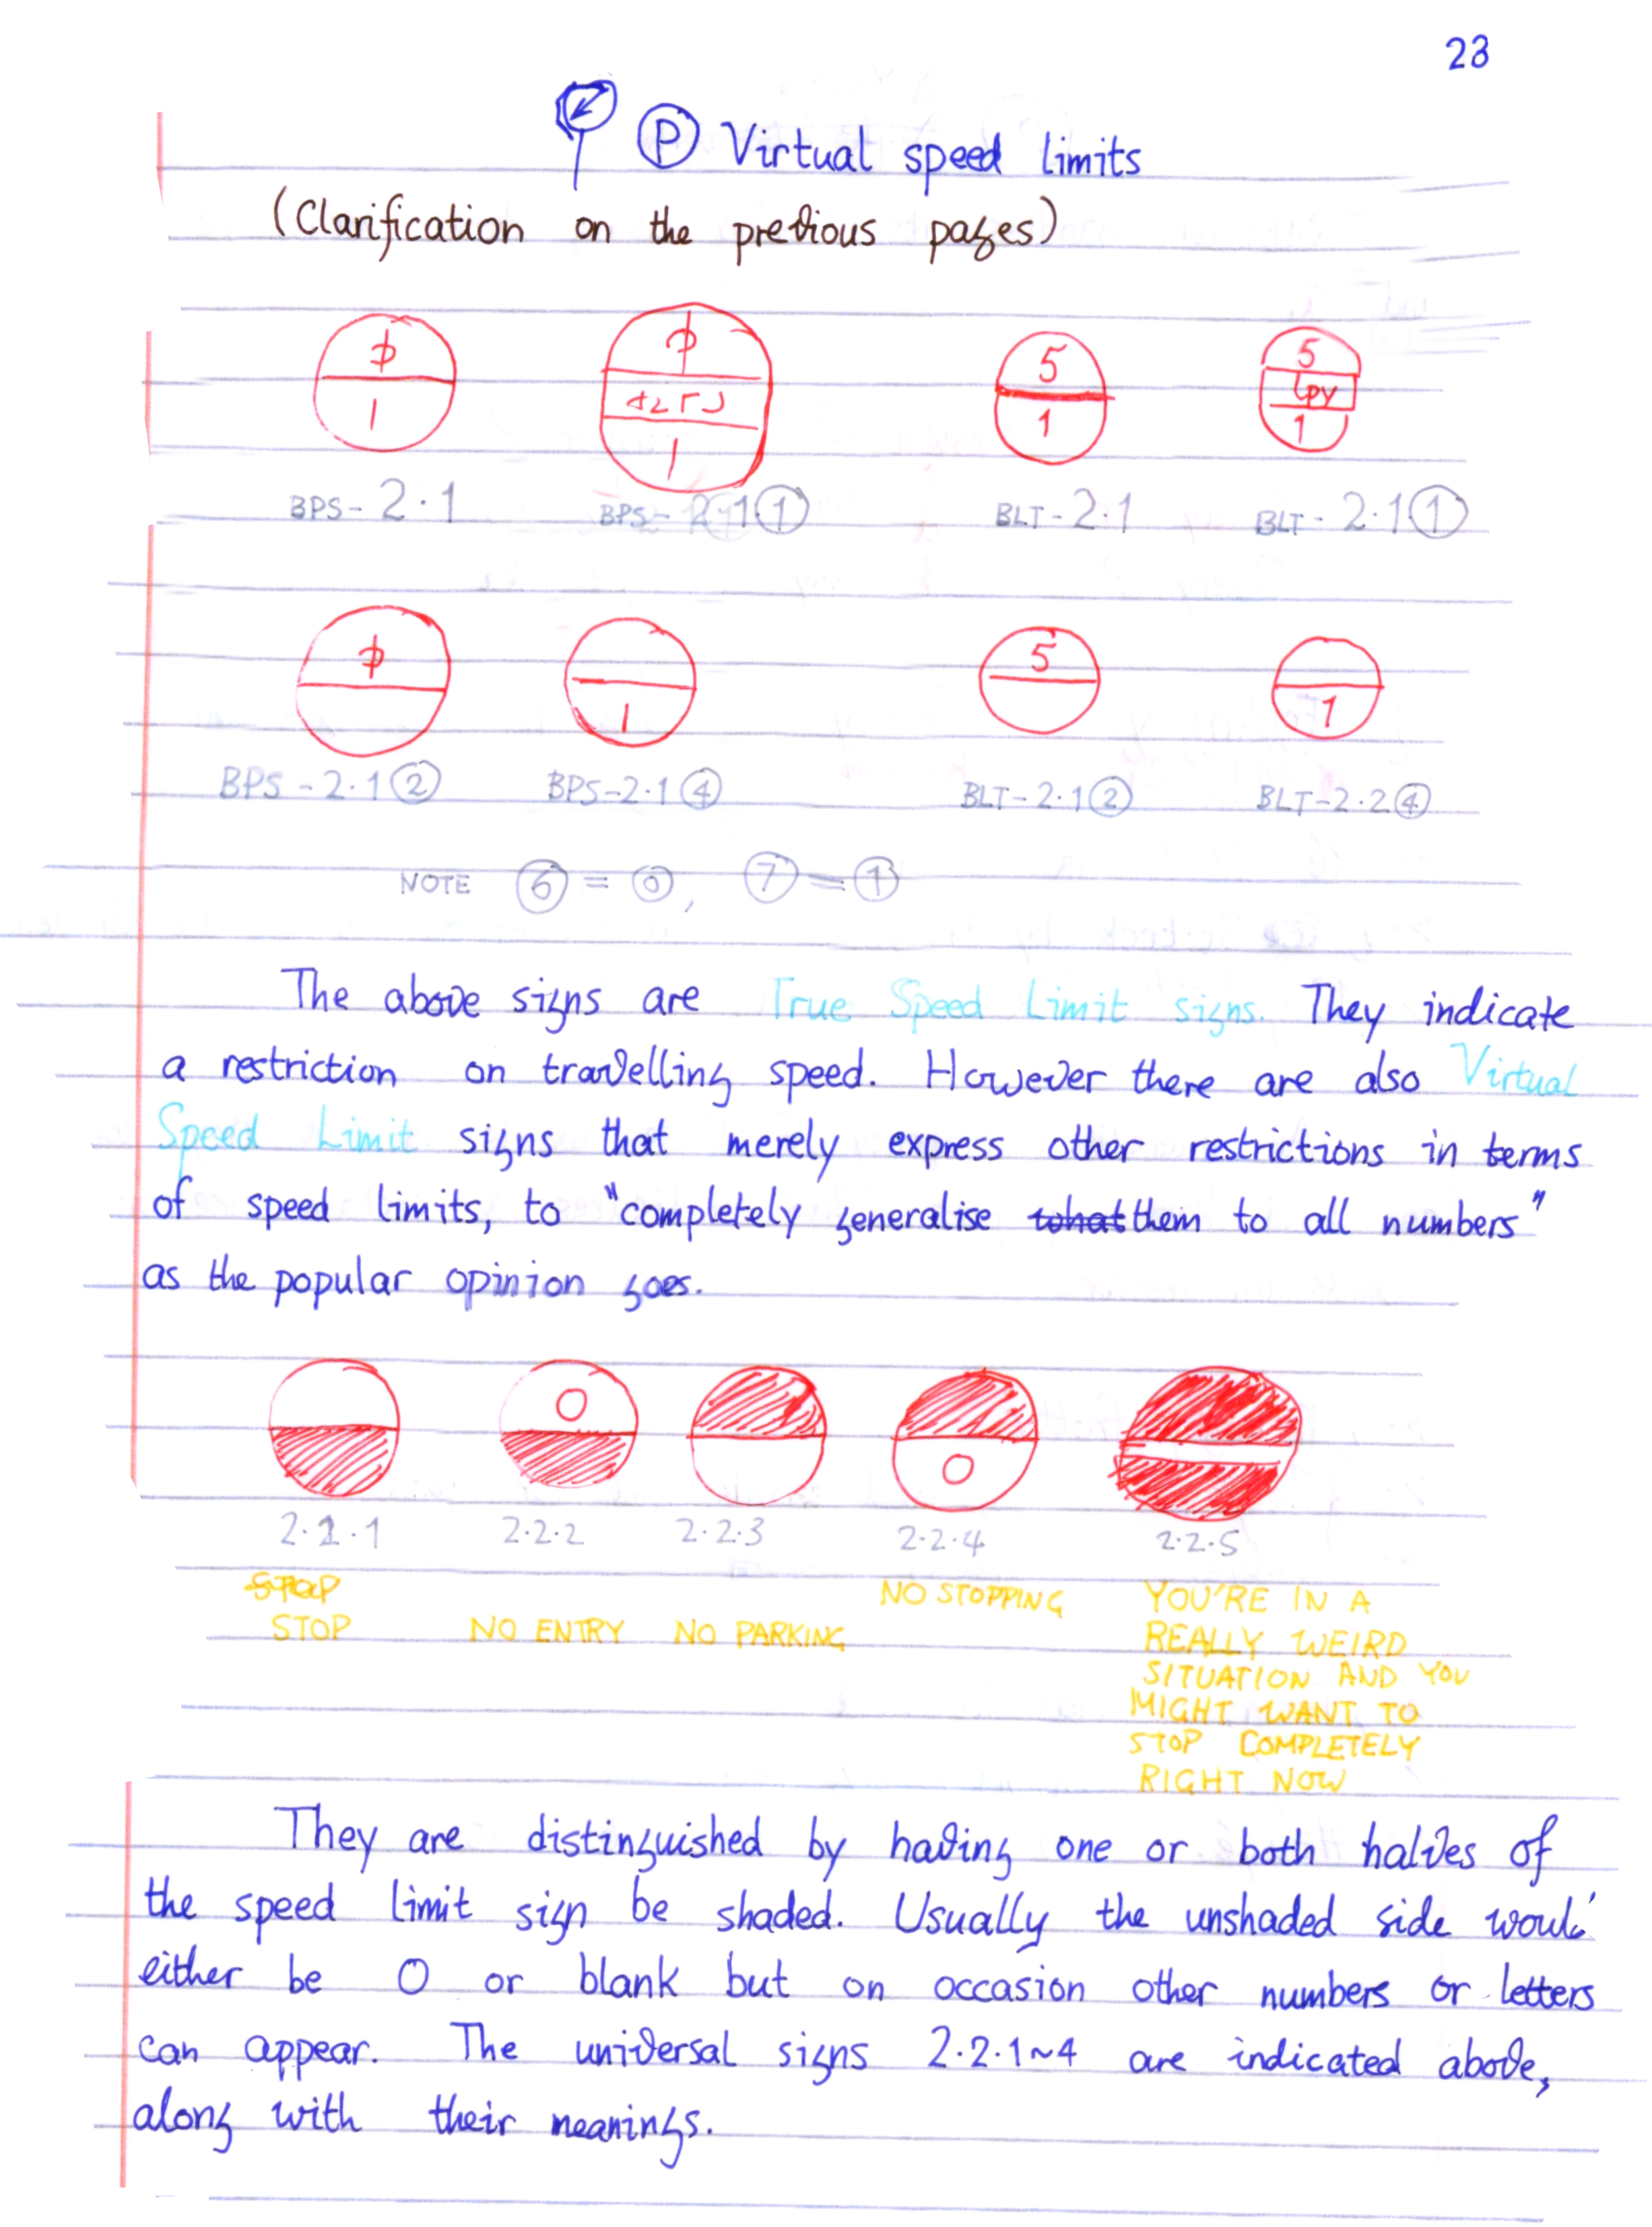 23
Ⓟ Virtual speed limits
(Clarification on the previous pages)
ф 1
ф 1
5 1
5 lpy 1
BPS-2.1 BPS-2.1① BLT-2.1 BLT-2.1①
ф 1 5 1
BPS-2.1② BPS-2.1④ BLT-2.1② BLT-2.2④
NOTE ⑥ = ⓪, ⑦ = ①
The above signs are True Speed Limit signs. They indicate
a restriction on travelling speed. However there are also Virtual
Speed Limit signs that merely express other restrictions in terms
of speed limits, to "completely generalise what them to all numbers"
as the popular opinion goes.
0 0
2.2.1 2.2.2 2.2.3 2.2.4 2.2.5
STOP
STOP NO ENTRY NO PARKING NO STOPPING
YOU'RE IN A
REALLY WEIRD
SITUATION AND YOU
MIGHT WANT TO
STOP COMPLETELY
RIGHT NOW
They are distinguished by having one or both halves of
the speed limit sign be shaded. Usually the unshaded side would
either be 0 or blank but on occasion other numbers or letters
can appear. The universal signs 2.2.1~4 are indicated above,
along with their meanings.